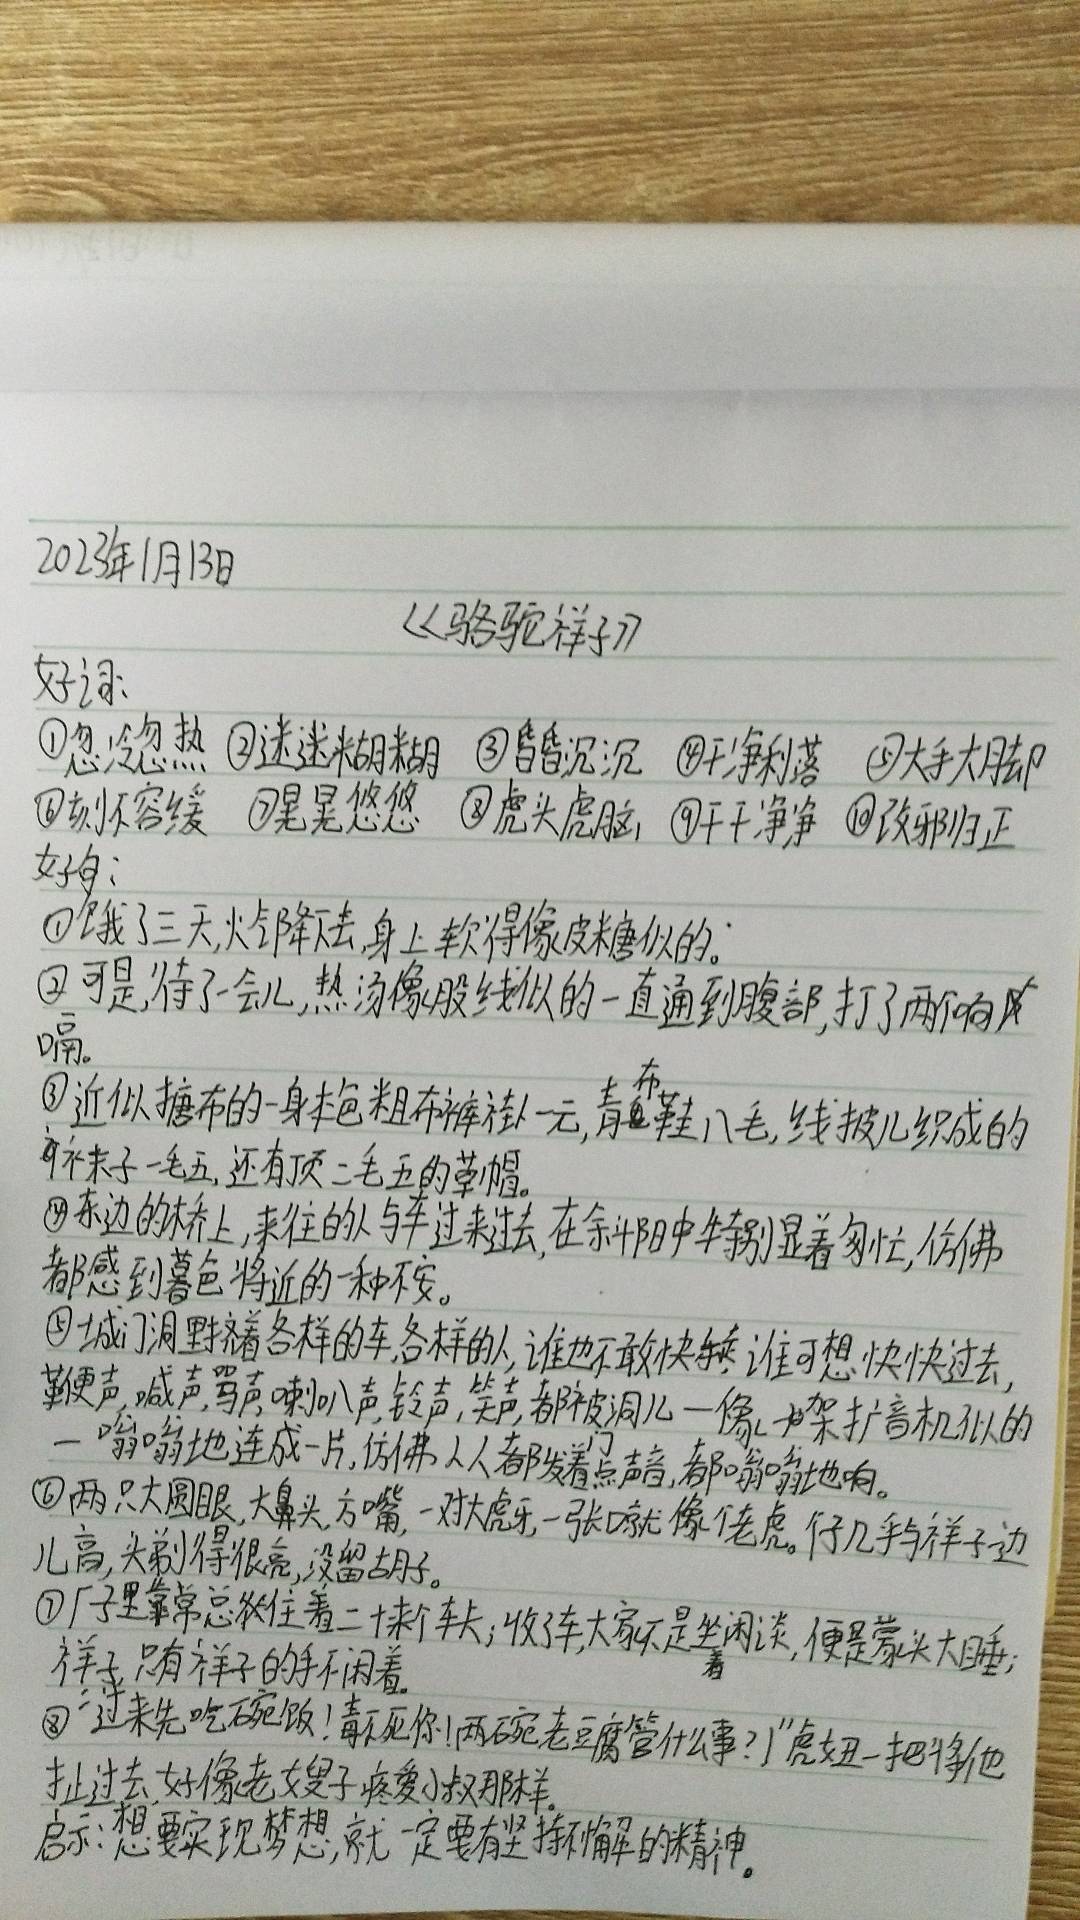 2023年1月13日
《骆驼祥子》
好词:
①忽冷忽热 ②迷迷糊糊 ③昏昏沉沉 ④干净利落 ⑤大手大脚
⑥刻不容缓 ⑦晃晃悠悠 ⑧虎头虎脑 ⑨干干净净 ⑩改邪归正
好句:
①饿了三天,火气降下去,身上软得像皮糖似的。
②可是,待了一会儿,热汤像股线似的一直通到腹部,打了两个响
嗝。
③近似搪布的一身本色粗布裤褂一元,青布鞋八毛,线披儿织成的
袜子一毛五,还有顶二毛五的草帽。
④东边的桥上,来往的人与车过来过去,在斜阳中特别显着匆忙,仿佛
都感到暮色将近的一种不安。
⑤城门洞里挤着各样的车,各样的人,谁也不敢快走,谁可想快快过去,
鞭声,喊声,骂声,喇叭声,铃声,笑声,都被洞儿—像一架扩音机似的
—嗡嗡地连成一片,仿佛人人都发着点声音,都嗡嗡地响。
⑥两只大圆眼,大鼻头,方嘴,一对大虎牙,一张口就像个老虎。个子几乎与祥子一边
儿高,头剃得很亮,没留胡子。
⑦厂子里靠常总住着二十来个车夫;收了车,大家不是坐着闲谈,便是蒙头大睡;
祥子,只有祥子的手不闲着。
⑧“过来先吃碗饭!毒不死你!两碗老豆腐管什么事?!”虎妞一把将他
扯过去,好像老嫂子疼爱小叔那样。
启示:想要实现梦想,就一定要有坚持不懈的精神。